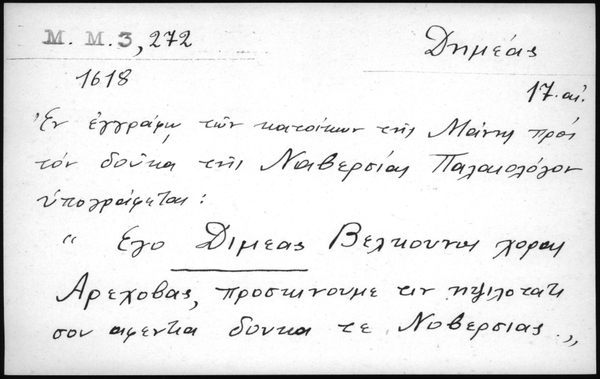 Μ. Μ. 3, 272
Δημέας
1618
17. αἰ.
Ἐν ἐγγράφῳ τῶν κατοίκων τῆς Μάνης πρός
τόν δοῦκα τῆς Ναβερσίας Παλαιολόγον
ὑπογράφεται:
" Εγο Διμεας Βελκουνις χορας
Αρεχοβας, προσκινουμε τιν ηψιλοτατι
σου αφεντια δουκα τε Νοβερσιας.„